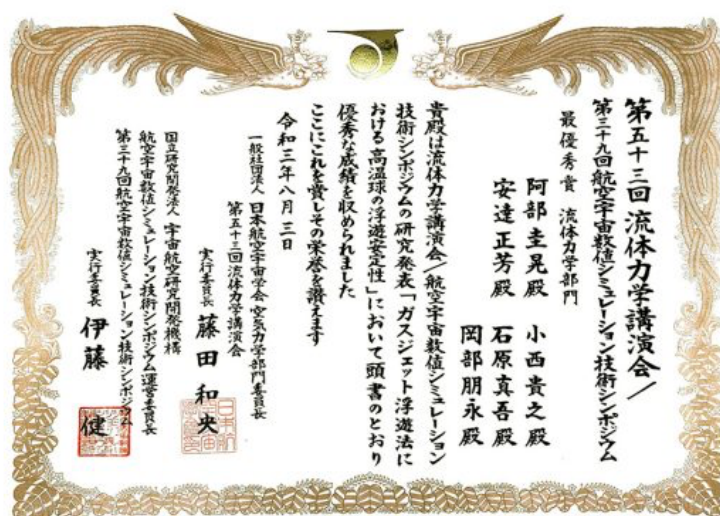 第五十三回 流体力学講演会／
第三十九回航空宇宙数値シミュレーション技術シンポジウム
最優秀賞 流体力学部門
阿部圭晃殿 小西貴之殿
安達正芳殿 石原真吾殿
岡部朋永殿
貴殿は流体力学講演会／航空宇宙数値シミュレーション
技術シンポジウムの研究発表「ガスジェット浮遊法に
おける高温球の浮遊安定性」において頭書のとおり
優秀な成績を収められました
ここにこれを賞しその栄誉を讃えます
令和三年八月三日
一般社団法人 日本航空宇宙学会 空気力学部門委員長
第五十三回流体力学講演会
実行委員長 藤田和央
国立研究開発法人 宇宙航空研究開発機構
航空宇宙数値シミュレーション技術シンポジウム運営委員長
第三十九回航空宇宙数値シミュレーション技術シンポジウム
実行委員長 伊藤健